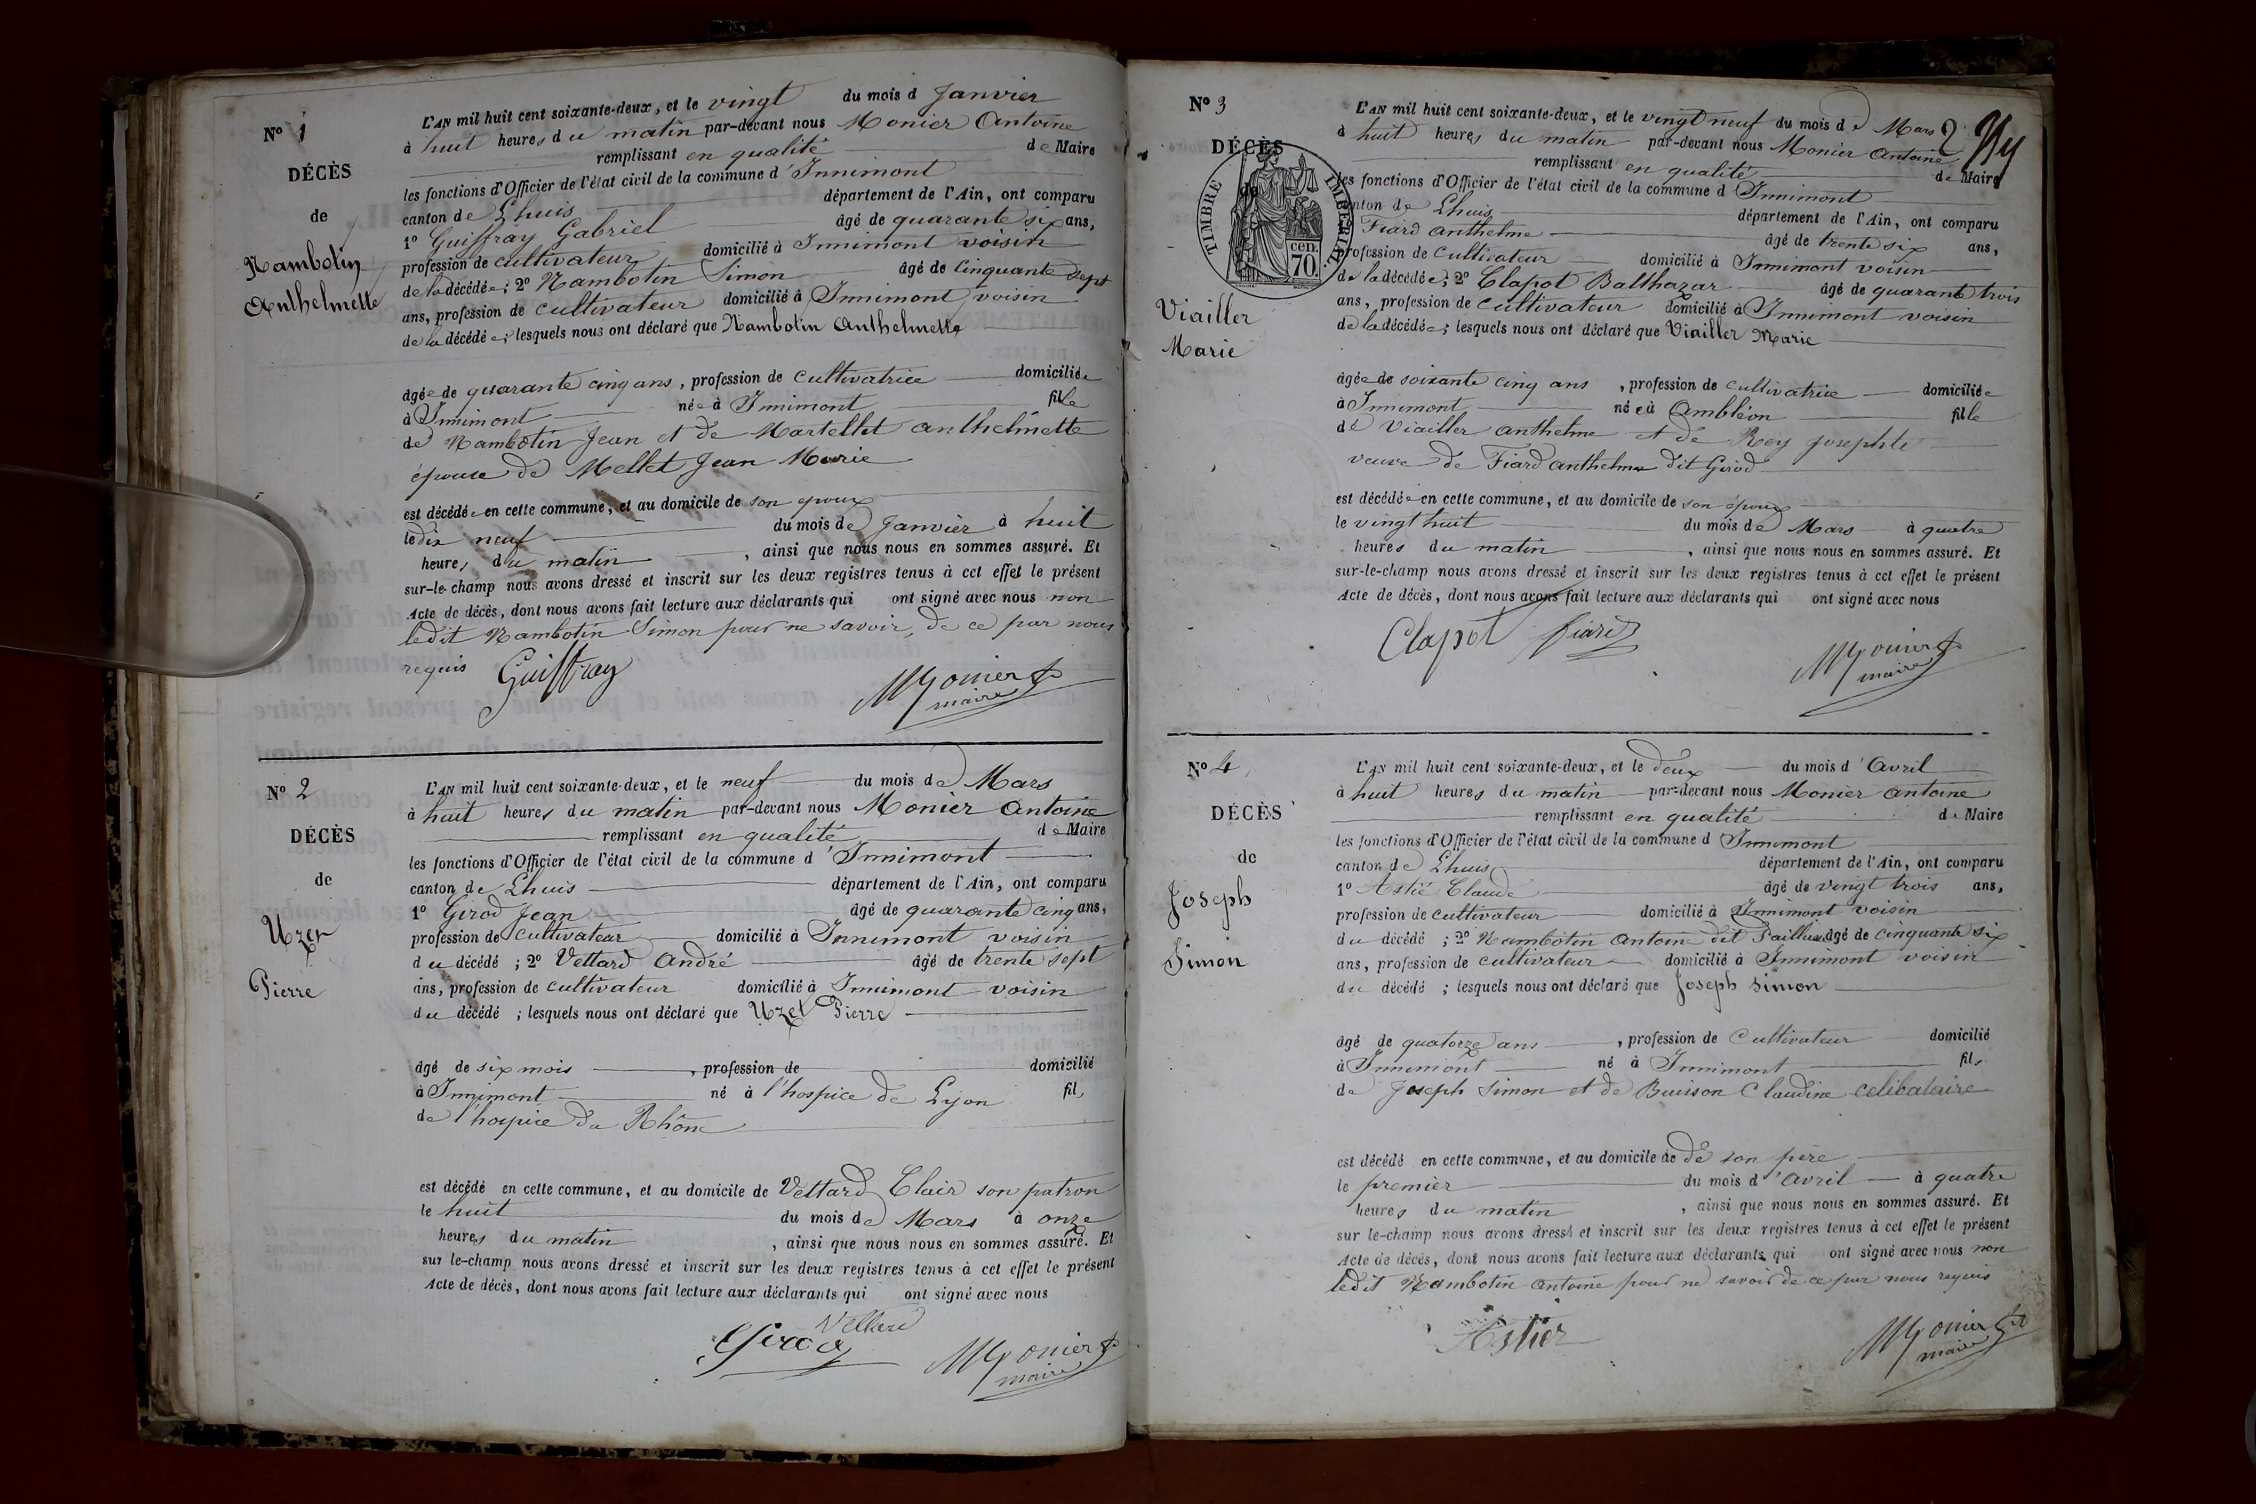 N° 1
DÉCÈS
de
Nambotin
Anthelmette
L'AN mil huit cent soixante-deux, et le vingt du mois d Janvier
à huit heures du matin par-devant nous Monier Antoine
remplissant en qualité de Maire
les fonctions d'Officier de l'état civil de la commune d'Innimont
canton de Lhuis département de l'Ain, ont comparu
1° Guiffray Gabriel âgé de quarante six ans,
profession de cultivateur domicilié à Innimont voisin
de la décédée; 2° Nambotin Simon âgé de cinquante sept
ans, profession de cultivateur domicilié à Innimont voisin
de la décédée; lesquels nous ont déclaré que Nambotin Anthelmette
âgée de quarante cinq ans, profession de cultivatrice domiciliée
à Innimont née à Innimont fille
de Nambotin Jean et de Martellet anthelmette
épouse de Mellet Jean Marie
est décédée en cette commune, et au domicile de son epoux
le dix neuf du mois de Janvier à huit
heures du matin, ainsi que nous nous en sommes assuré. Et
sur-le-champ nous avons dressé et inscrit sur les deux registres tenus à cet effet le présent
Acte de décès, dont nous avons fait lecture aux déclarants qui ont signé avec nous non
ledit Nambotin Simon pour ne savoir, de ce par nous
requis Guiffray Monier
maire
N° 2
DÉCÈS
de
Uzel
Pierre
L'AN mil huit cent soixante-deux, et le neuf du mois de Mars
à huit heures du matin par-devant nous Monier Antoine
remplissant en qualité de Maire
les fonctions d'Officier de l'état civil de la commune d'Innimont
canton de Lhuis département de l'Ain, ont comparu
1° Girod Jean âgé de quarante cinq ans,
profession de cultivateur domicilié à Innimont voisin
du décédé; 2° Vettard André âgé de trente sept
ans, profession de cultivateur domicilié à Innimont voisin
du décédé; lesquels nous ont déclaré que Uzel Pierre
âgé de six mois, profession de domicilié
à Innimont né à l'hospice de Lyon fils
de l'hospice du Rhône
est décédé en cette commune, et au domicile de Vettard Clair son patron
le huit du mois de Mars à onze
heures du matin, ainsi que nous nous en sommes assuré. Et
sur le-champ nous avons dressé et inscrit sur les deux registres tenus à cet effet le présent
Acte de décès, dont nous avons fait lecture aux déclarants qui ont signé avec nous
Vettard
Girod Monier
maire
N° 3
DÉCÈS
de
TIMBRE IMPERIAL
cen.
70.
Viailler
Marie
2
L'AN mil huit cent soixante-deux, et le vingt neuf du mois de Mars
à huit heures du matin par-devant nous Monier Antoine
remplissant en qualité de Maire
les fonctions d'Officier de l'état civil de la commune d Innimont
canton de Lhuis département de l'Ain, ont comparu
Fiard anthelme âgé de trente six ans,
profession de cultivateur domicilié à Innimont voisin
de la décédée; 2° Clapot Balthazar âgé de quarante trois
ans, profession de cultivateur domicilié à Innimont voisin
de la décédée; lesquels nous ont déclaré que Viailler Marie
âgée de soixante cinq ans, profession de cultivatrice domiciliée
à Innimont née à Ambléon fille
de Viailler anthelme et de Rey josephte
veuve de Fiard anthelme dit Girod
est décédée en cette commune, et au domicile de son époux
le vingt huit du mois de Mars à quatre
heures du matin, ainsi que nous nous en sommes assuré. Et
sur-le-champ nous avons dressé et inscrit sur les deux registres tenus à cet effet le présent
Acte de décès, dont nous avons fait lecture aux déclarants qui ont signé avec nous
Clapot fiard Monier
maire
N° 4
DÉCÈS
de
Joseph
Simon
L'AN mil huit cent soixante-deux, et le deux du mois d'Avril
à huit heures du matin par-devant nous Monier antoine
remplissant en qualité de Maire
les fonctions d'Officier de l'état civil de la commune d Innimont
canton de Lhuis département de l'Ain, ont comparu
1° Astié Claude âgé de vingt trois ans,
profession de cultivateur domicilié à Innimont voisin
du décédé; 2° Nambotin antoine dit âgé de cinquante six
ans, profession de cultivateur domicilié à Innimont voisin
du décédé; lesquels nous ont déclaré que Joseph Simon
âgé de quatorze ans, profession de cultivateur domicilié
à Innimont né à Innimont fils
de Joseph Simon et de Buisson Claudine celibataire
est décédé en cette commune, et au domicile de de son père
le premier du mois d'avril à quatre
heures du matin, ainsi que nous nous en sommes assuré. Et
sur le-champ nous avons dressé et inscrit sur les deux registres tenus à cet effet le présent
Acte de décès, dont nous avons fait lecture aux déclarants qui ont signé avec nous non
ledit Nambotin antoine pour ne savoir de ce par nous requis
Astier Monier
maire